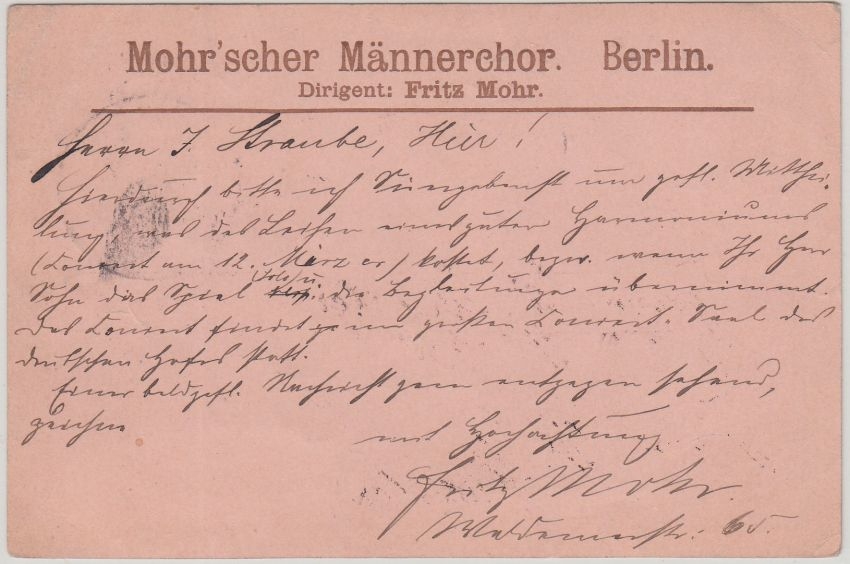 Mohr'scher Männerchor. Berlin.
Dirigent: Fritz Mohr.
Herrn J. Straube, Hier!
Hierdurch bitte ich Sie ergebenst um gefl. Mitthei-
lung was das Leihen eines guten Harmoniums
(Concert am 12. März cr) kostet, bezw. wenn Ihr Herr
Sohn das Spiel (Solo) u. die Begleitung übernimmt.
Das Concert findet im großen Concert-Saal des
deutschen Hofes statt.
Einer baldgefl. Nachricht gern entgegen sehend,
zeichne
mit Hochachtung
Fritz Mohr.
Waldemarstr. 65.